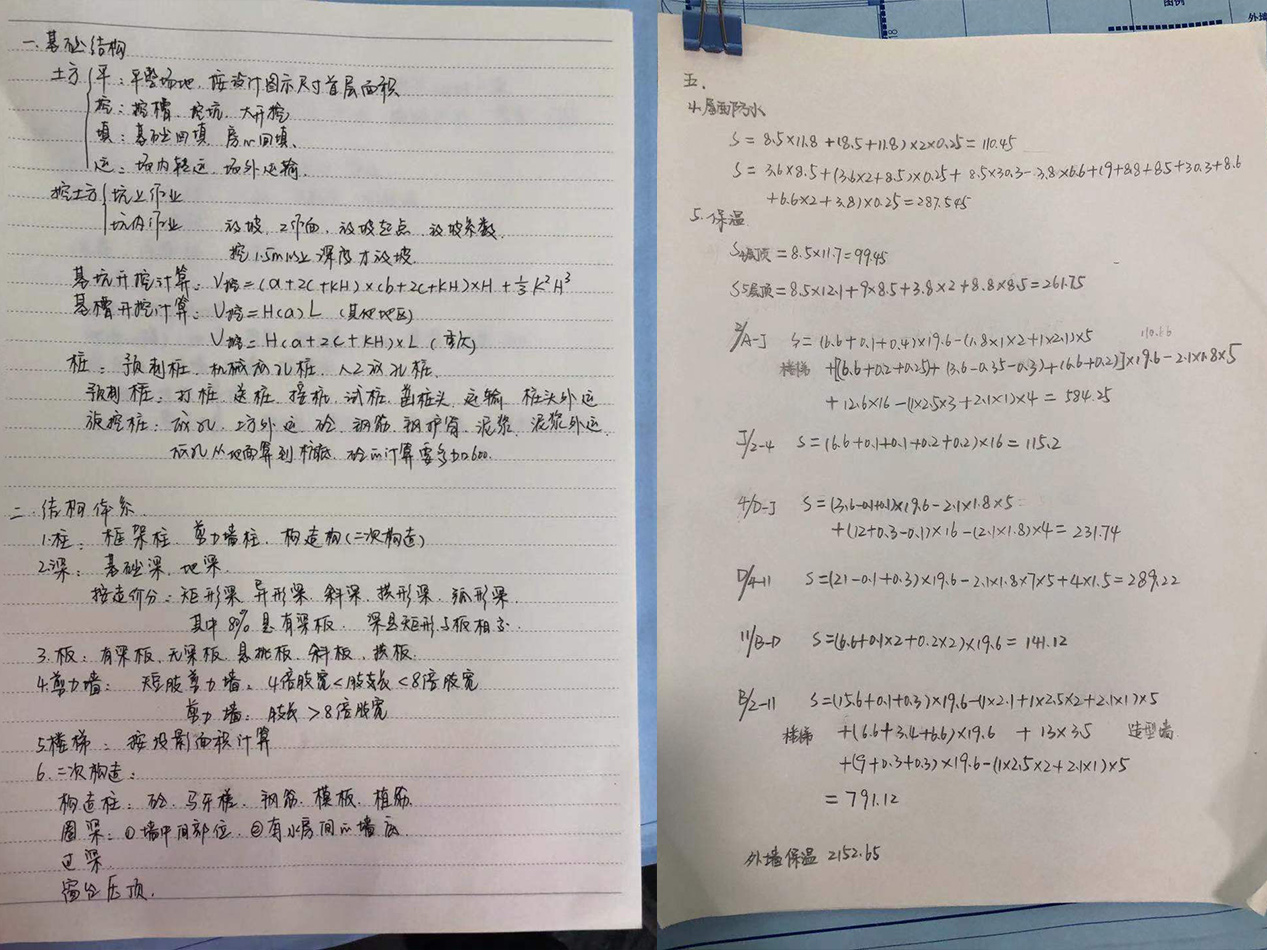 一.基础结构
土方 平:平整场地,按设计图示尺寸首层面积
挖:挖槽,挖坑,大开挖
填:基础回填,房心回填.
运:场内转运,场外运输.
挖土方 坑上作业
坑内作业 放坡,工作面,放坡起点,放坡系数.
挖1.5m以上深度才放坡.
基坑开挖计算:V挖=(a+2C+KH)×(b+2C+KH)×H+⅓K²H³
基槽开挖计算:V挖=H(a)L(其他地区)
V挖=H(a+2C+KH)×L(重庆)
桩:预制桩,机械成孔桩,人工成孔桩.
预制桩:打桩,送桩,接桩,试桩,凿桩头,运输,桩头外运
旋挖桩:成孔,土方外运,砼,钢筋,钢护筒,泥浆,泥浆外运.
成孔从地面算到桩底,砼的计算要多加0.600.
二.结构体系
1.柱:框架柱,剪力墙柱,构造构(二次构造)
2.梁:基础梁,地梁.
按造价分:矩形梁,异形梁,斜梁,拱形梁,弧形梁.
其中80%是有梁板. 梁是矩形与板相交.
3.板:有梁板,无梁板,悬挑板,斜板,拱板.
4.剪力墙: 短肢剪力墙:4倍肢宽<肢长<8倍肢宽
剪力墙:肢长>8倍肢宽
5.楼梯:按投影面积计算
6.二次构造:
构造柱:砼,马牙槎,钢筋,模板,植筋.
圈梁:①墙中间部位,②有水房间的墙底
过梁
窗台压顶.
图例
外墙
五.
4.屋面防水
S=8.5×11.8+(8.5+11.8)×2×0.25=110.45
S=3.6×8.5+(3.6×2+8.5)×0.25+8.5×30.3-3.8×6.6+(9+8.8+8.5+30.3+8.6
+6.6×2+3.8)×0.25=287.545
5.保温
S屋顶=8.5×11.7=99.45
S5层顶=8.5×12.1+9×8.5+3.8×2+8.8×8.5=261.75
2/A-J S=(6.6+0.1+0.4)×19.6-(1.8×1×2+1×2.1)×5
楼梯 +[(6.6+0.2+0.25)+(3.6-0.35-0.3)+(6.6+0.2)]×19.6-2.1×1.8×5
+12.6×16-(1×2.5×3+2.1×1)×4=584.25
J/2-4 S=(6.6+0.1+0.1+0.2+0.2)×16=115.2
4/D-J S=(3.6-0.1+0.1)×19.6-2.1×1.8×5
+(12+0.3-0.1)×16-(2.1×1.8)×4=231.74
D/4-11 S=(21-0.1+0.3)×19.6-2.1×1.8×7×5+4×1.5=289.22
11/B-D S=(6.6+0.1×2+0.2×2)×19.6=141.12
B/2-11 S=(15.6+0.1+0.3)×19.6-(1×2.1+1×2.5×2+2.1×1)×5
楼梯 +(6.6+3.4+6.6)×19.6 +13×3.5 造型墙
+(9+0.3+0.3)×19.6-(1×2.5×2+2.1×1)×5
=791.12
外墙保温 2152.65